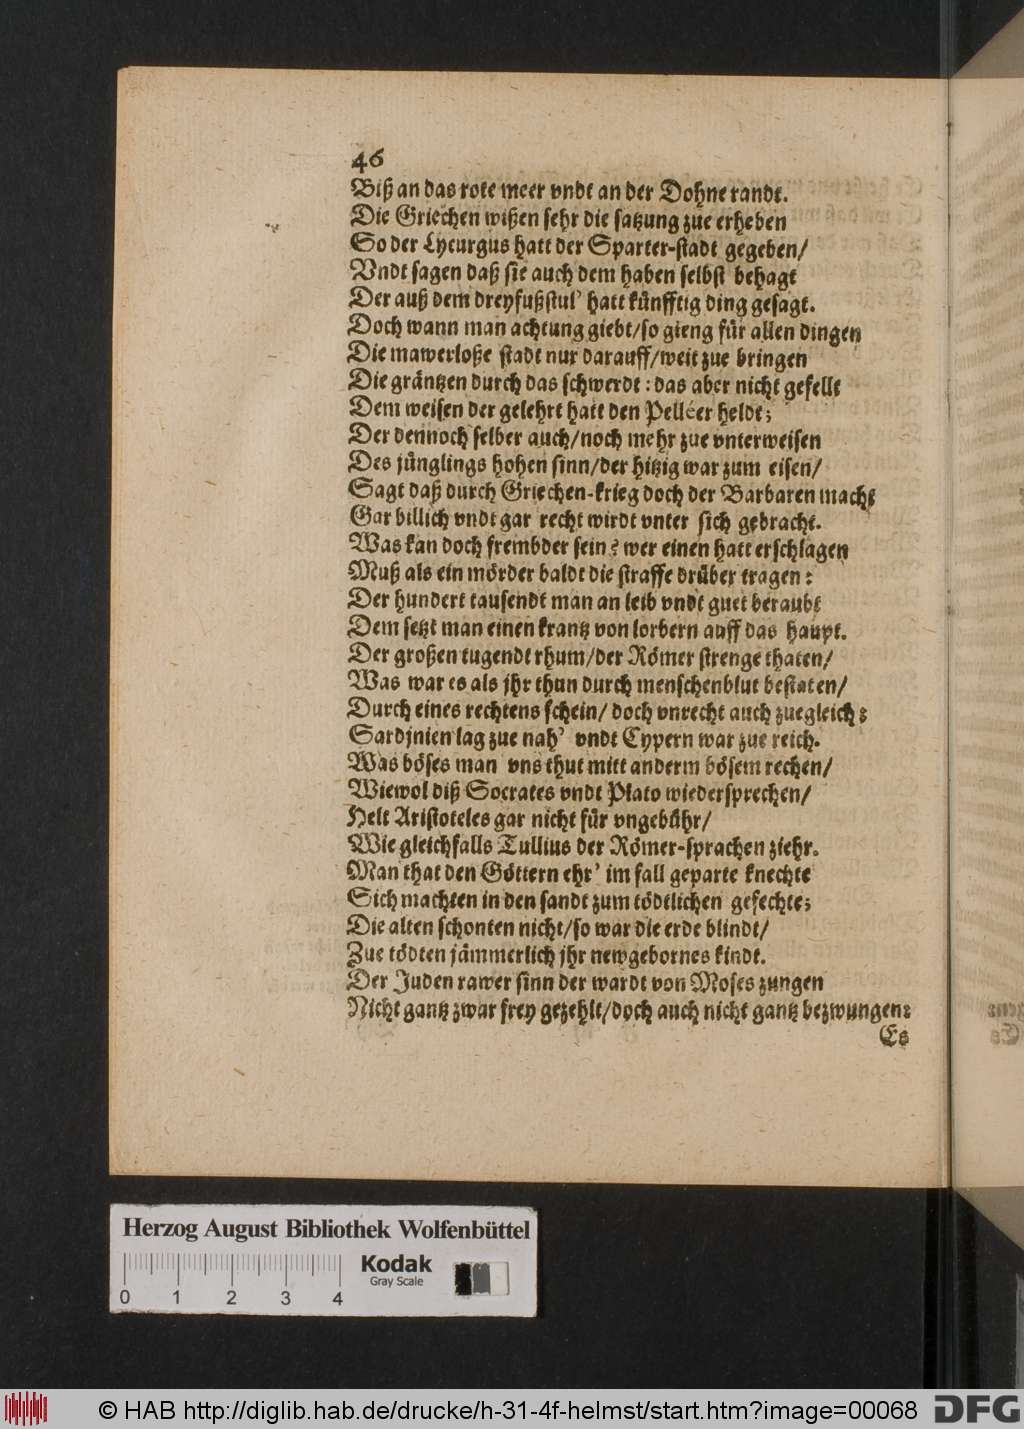 46
Biß an das rote meer vndt an der Dohne randt.
Die Griechen wißen sehr die satzung zue erheben
So der Lycurgus hatt der Sparter-stadt gegeben/
Vndt sagen daß sie auch dem haben selbst behagt
Der auß dem dreyfußstul’ hatt künfftig ding gesagt.
Doch wann man achtung giebt/so gieng für allen dingen
Die mawerloße stadt nur darauff/weit zue bringen
Die gräntzen durch das schwerdt: das aber nicht gefellt
Dem weisen der gelehrt hatt den Pelléer heldt;
Der dennoch selber auch/noch mehr zue vnterweisen
Des jünglings hohen sinn/der hitzig war zum eisen/
Sagt daß durch Griechen-krieg doch der Barbaren macht
Gar billich vndt gar recht wirdt vnter sich gebracht.
Was kan doch frembder sein? wer einen hatt erschlagen
Muß als ein mörder baldt die straffe drüber tragen:
Der hundert tausendt man an leib vndt guet beraubt
Dem setzt man einen krantz von lorbern auff das haupt.
Der großen tugendt rhum/der Römer strenge thaten/
Was war es als jhr thun durch menschenblut bestaten/
Durch eines rechtens schein/ doch vnrecht auch zuegleich:
Sardjnien lag zue nah’ vndt Cypern war zue reich.
Was böses man vns thut mitt anderm bösem rechen/
Wiewol diß Socrates vndt Plato wiedersprechen/
Helt Aristoteles gar nicht für vngebühr/
Wie gleichfalls Tullius der Römer-sprachen ziehr.
Man that den Göttern ehr’ im fall geparte knechte
Sich machten in den sandt zum tödtlichen gefechte;
Die alten schonten nicht/so war die erde blindt/
Zue tödten jämmerlich jhr newgebornes kindt.
Der Juden rawer sinn der wardt von Moses zungen
Nicht gantz zwar frey gezehlt/doch auch nicht gantz bezwungen:
Es
Herzog August Bibliothek Wolfenbüttel
Kodak
Gray Scale
0 1 2 3 4
© HAB http://diglib.hab.de/drucke/h-31-4f-helmst/start.htm?image=00068
DFG